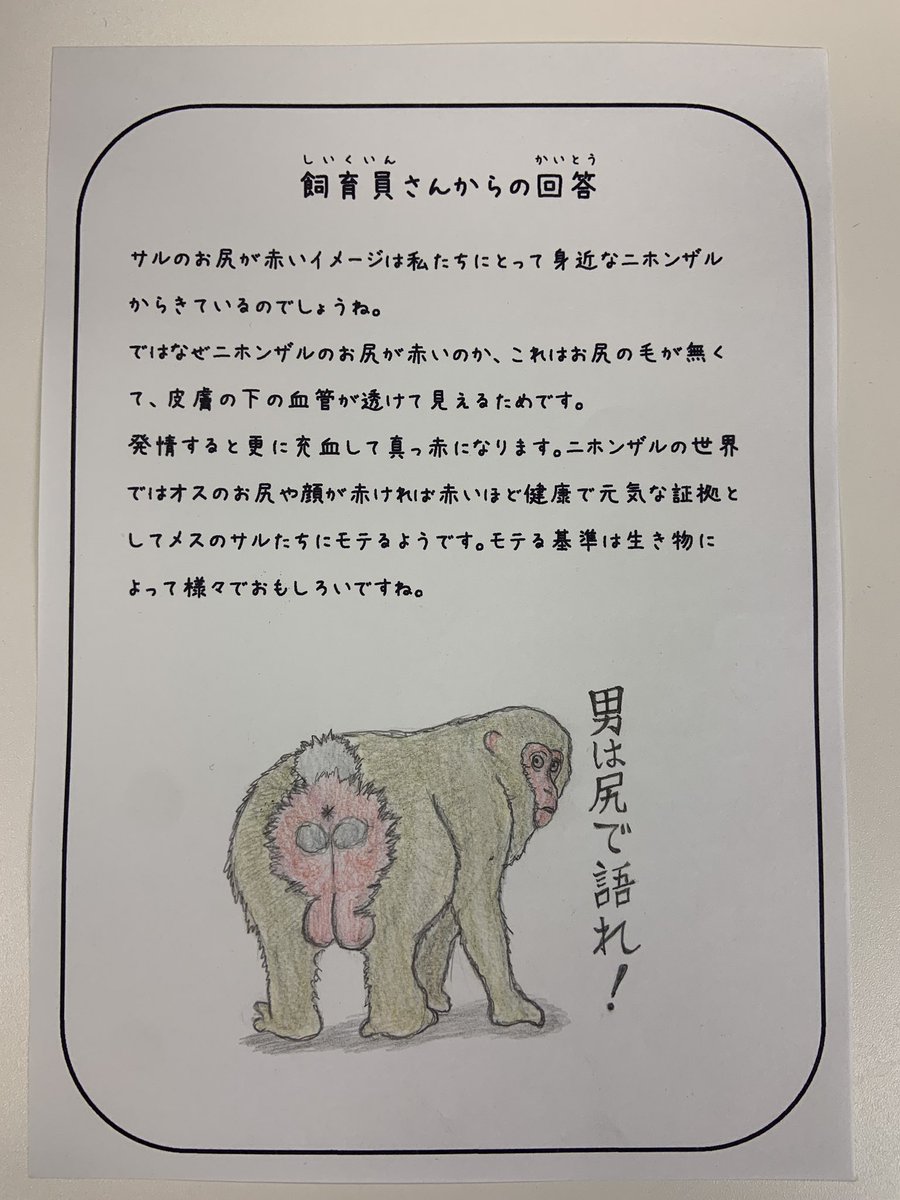 しいくいん かいとう
飼育員さんからの回答
サルのお尻が赤いイメージは私たちにとって身近なニホンザル
からきているのでしょうね。
ではなぜニホンザルのお尻が赤いのか、これはお尻の毛が無く
て、皮膚の下の血管が透けて見えるためです。
発情すると更に充血して真っ赤になります。ニホンザルの世界
ではオスのお尻や顔が赤ければ赤いほど健康で元気な証拠と
してメスのサルたちにモテるようです。モテる基準は生き物に
よって様々でおもしろいですね。
男は尻で語れ!